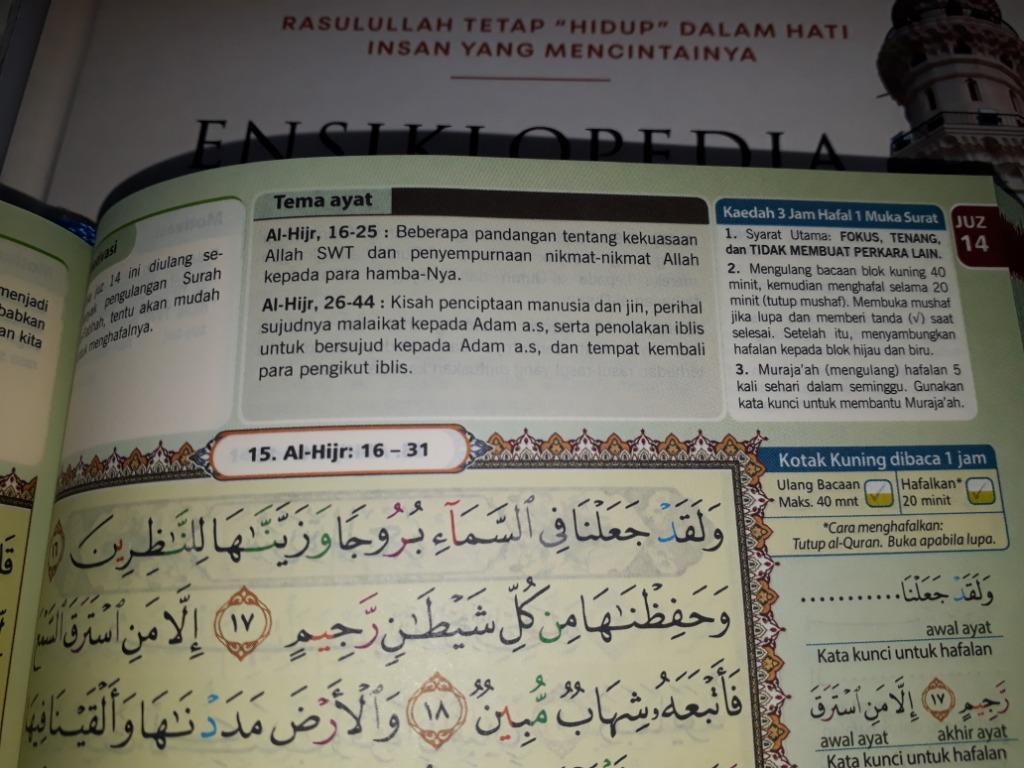 RASULULLAH TETAP "HIDUP" DALAM HATI
INSAN YANG MENCINTAINYA
ENSIKLOPEDIA
menjadi
babkan
an kita
14 ini diulang se-
pengulangan Surah
tentu akan mudah
menghafalnya.
Tema ayat
Al-Hijr, 16-25 : Beberapa pandangan tentang kekuasaan
Allah SWT dan penyempurnaan nikmat-nikmat Allah
kepada para hamba-Nya.
Al-Hijr, 26-44 : Kisah penciptaan manusia dan jin, perihal
sujudnya malaikat kepada Adam a.s, serta penolakan iblis
untuk bersujud kepada Adam a.s, dan tempat kembali
para pengikut iblis.
Kaedah 3 Jam Hafal 1 Muka Surat
1. Syarat Utama: FOKUS, TENANG,
dan TIDAK MEMBUAT PERKARA LAIN.
2. Mengulang bacaan blok kuning 40
minit, kemudian menghafal selama 20
minit (tutup mushaf). Membuka mushaf
jika lupa dan memberi tanda (√) saat
selesai. Setelah itu, menyambungkan
hafalan kepada blok hijau dan biru.
3. Muraja'ah (mengulang) hafalan 5
kali sehari dalam seminggu. Gunakan
kata kunci untuk membantu Muraja'ah.
JUZ
14
15. Al-Hijr: 16 – 31
وَلَقَدْ جَعَلْنَا فِي السَّمَآءِ بُرُوجًا وَزَيَّنَّٰهَا لِلنَّٰظِرِينَ ١٦
وَحَفِظْنَٰهَا مِن كُلِّ شَيْطَٰنٍ رَّجِيمٍ ١٧ إِلَّا مَنِ ٱسْتَرَقَ
فَأَتْبَعَهُۥ شِهَابٌ مُّبِينٌ ١٨ وَٱلْأَرْضَ مَدَدْنَٰهَا وَأَلْقَيْنَا فِيهَا
Kotak Kuning dibaca 1 jam
Ulang Bacaan
Maks. 40 mnt
Hafalkan*
20 minit
*Cara menghafalkan:
Tutup al-Quran. Buka apabila lupa.
وَلَقَدْ جَعَلْنَا...........
awal ayat
Kata kunci untuk hafalan
رَّجِيمٍ ١٧ إِلَّا مَنِ ٱسْتَرَقَ
awal ayat akhir ayat
Kata kunci untuk hafalan